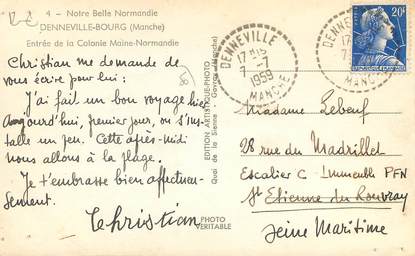 4 - Notre Belle Normandie
DENNEVILLE-BOURG (Manche)
Entrée de la Colonie Maine-Normandie
Christian me demande de
vous écrire pour lui :
J'ai fait un bon voyage hier
aujourd'hui, premier jour, on s'ins-
talle un peu. Cette après-midi
nous allons à la plage.
Je t'embrasse bien affectueu-
sement.
Christian
EDITION ARTISTIQUE-PHOTO
Quai de la Sienne - Gavray (Manche)
PHOTO
VERITABLE
DENNEVILLE
17 H15
7 -7
1959
MANCHE
DENNEVILLE
17
7
MANCHE
20F
Madame Lebeuf
28 rue du Madrillet
Escalier C - Immeuble PFN
St Etienne du Rouvray
Seine Maritime